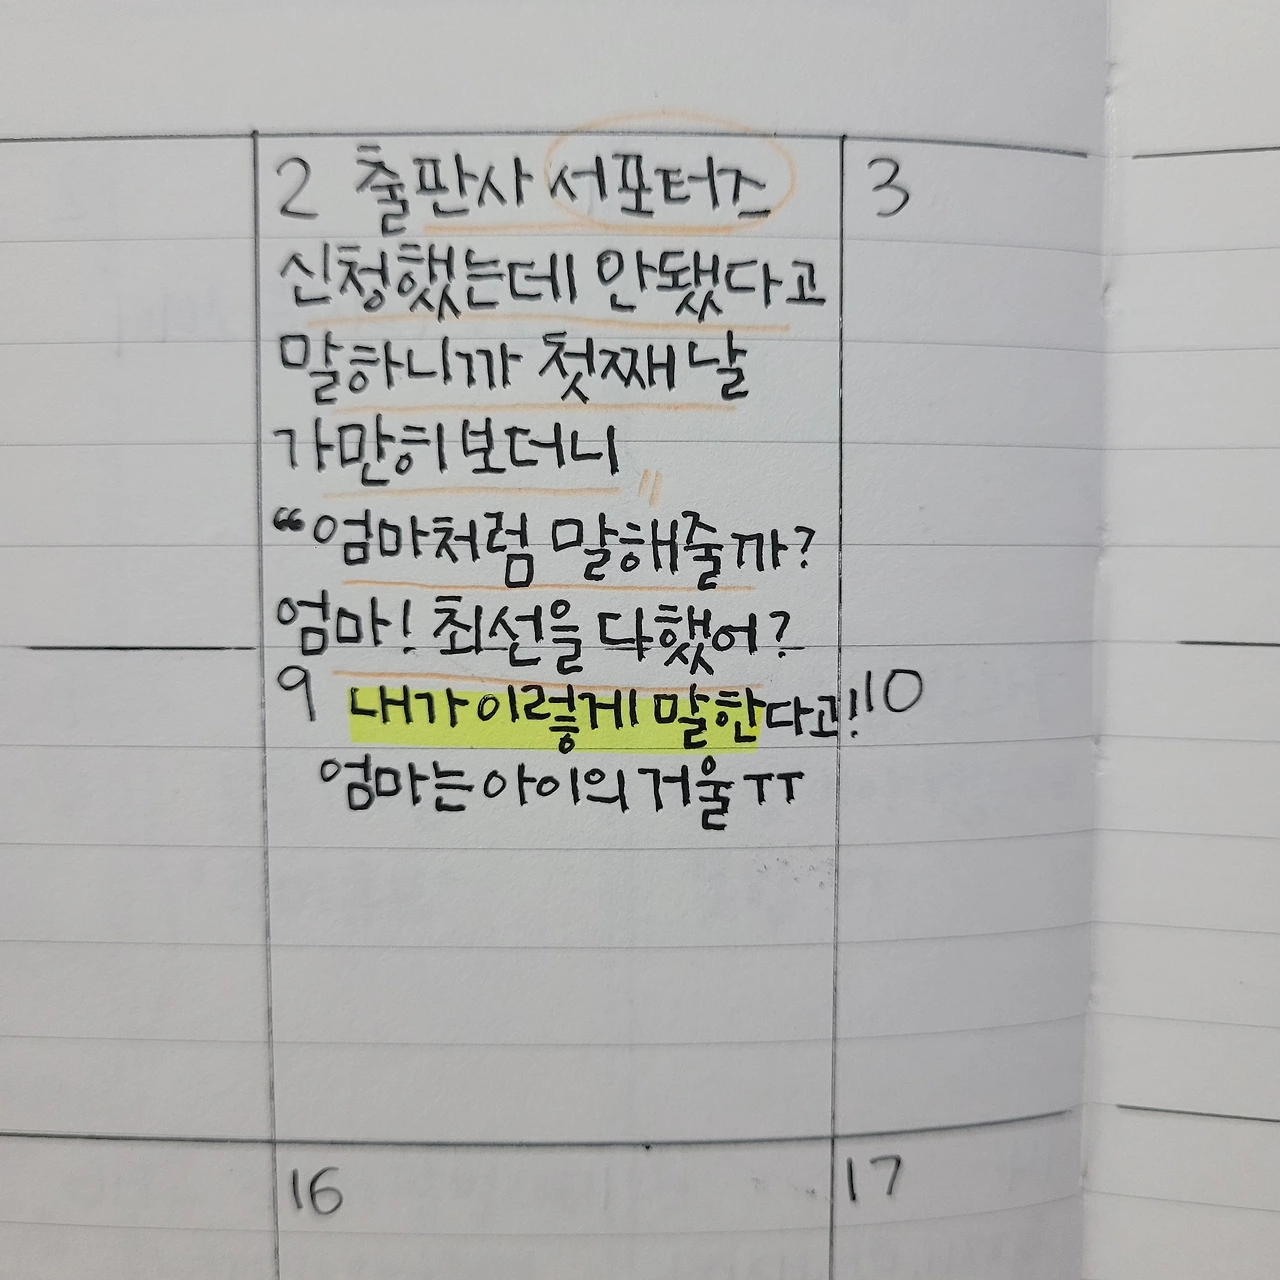 2 출판사 서포터즈 3
신청했는데 안됐다고
말하니까 첫째 날
가만히 보더니
“엄마처럼 말해줄까?
엄마! 최선을 다했어?
9 내가 이렇게 말한다고! 10
엄마는 아이의 거울 ㅜㅜ
16 17